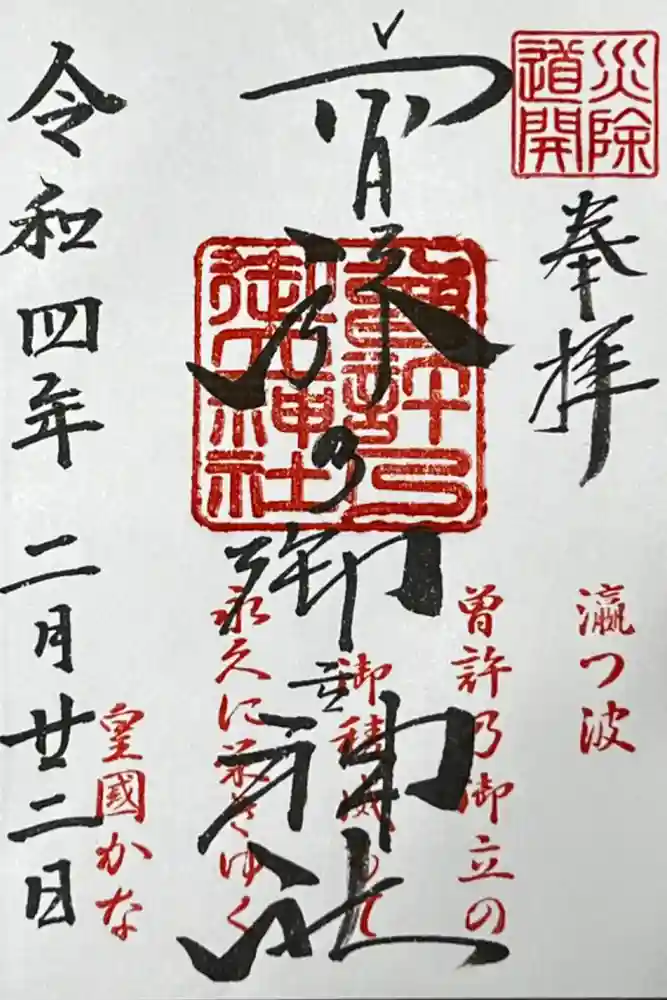 災除
道開
奉拝
曾許乃
御立神社
曽許乃御立神社
瀛つ波
曽許乃御立の
御稜威もて
永久に栄えゆく
皇國かな
令和四年二月廿二日